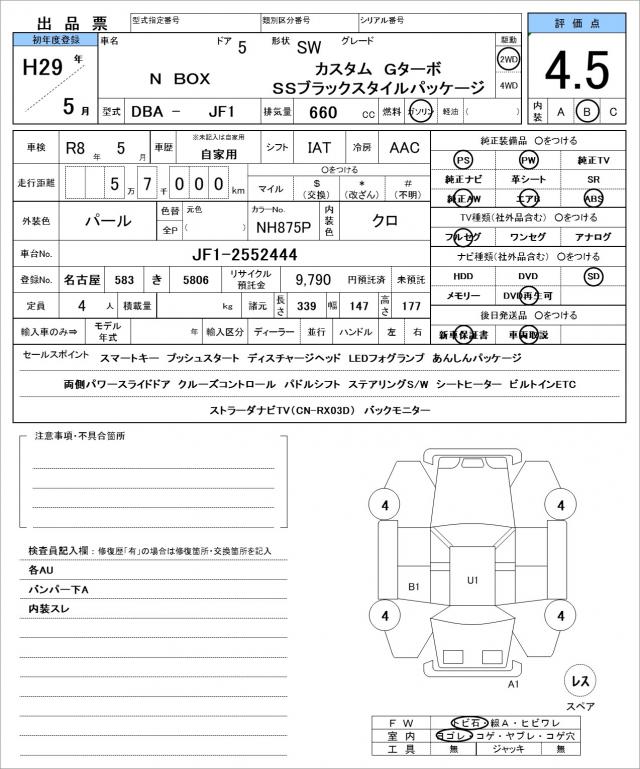 出品票 型式指定番号 類別区分番号 シリアル番号 評価点
初年度登録 車名 ドア 5 形状 SW グレード 駆動
H29 年 N BOX カスタム Gターボ 2WD 4.5
SSブラックスタイルパッケージ 4WD
5 月 型式 DBA - JF1 排気量 660 cc 燃料 ガソリン 軽油 ( ) 内装 A B C
車検 R8 年 5 月 車歴 ※未記入は自家用 自家用 シフト IAT 冷房 AAC 純正装備品 〇をつける
PS PW 純正TV
走行距離 5 万 7 千 0 0 0 km 〇をつける
マイル $ (交換) * (改ざん) # (不明)
純正ナビ 革シート SR
純正AW エアB ABS
外装色 パール 色替 元色 カラーNo. 内装色 クロ
全P ( ) NH875P
TV種類(社外品含む) 〇をつける
フルセグ ワンセグ アナログ
車台No. JF1-2552444 ナビ種類(社外品含む) 〇をつける
登録No. 名古屋 583 き 5806 リサイクル預託金 9,790 円預託済 未預託 HDD DVD SD
定員 4 人 積載量 kg 諸元 長さ 339 幅 147 高さ 177 メモリー DVD再生可
後日発送品 〇をつける
輸入車のみ⇒ モデル年式 年 輸入区分 ディーラー 並行 ハンドル 左 右 新車保証書 車両取説
セールスポイント スマートキー プッシュスタート ディスチャージヘッド LEDフォグランプ あんしんパッケージ
両側パワースライドドア クルーズコントロール パドルシフト ステアリングS/W シートヒーター ビルトインETC
ストラーダナビTV(CN-RX03D) バックモニター
注意事項・不具合箇所
検査員記入欄：修復歴「有」の場合は修復箇所・交換箇所を記入
各AU
バンパー下A
内装スレ
4 4
B1 U1
4 4
A1 レス
スペア
FW トビ石・線A・ヒビワレ
室内 ヨゴレ・コゲ・ヤブレ・コゲ穴
工具 無 ジャッキ 無